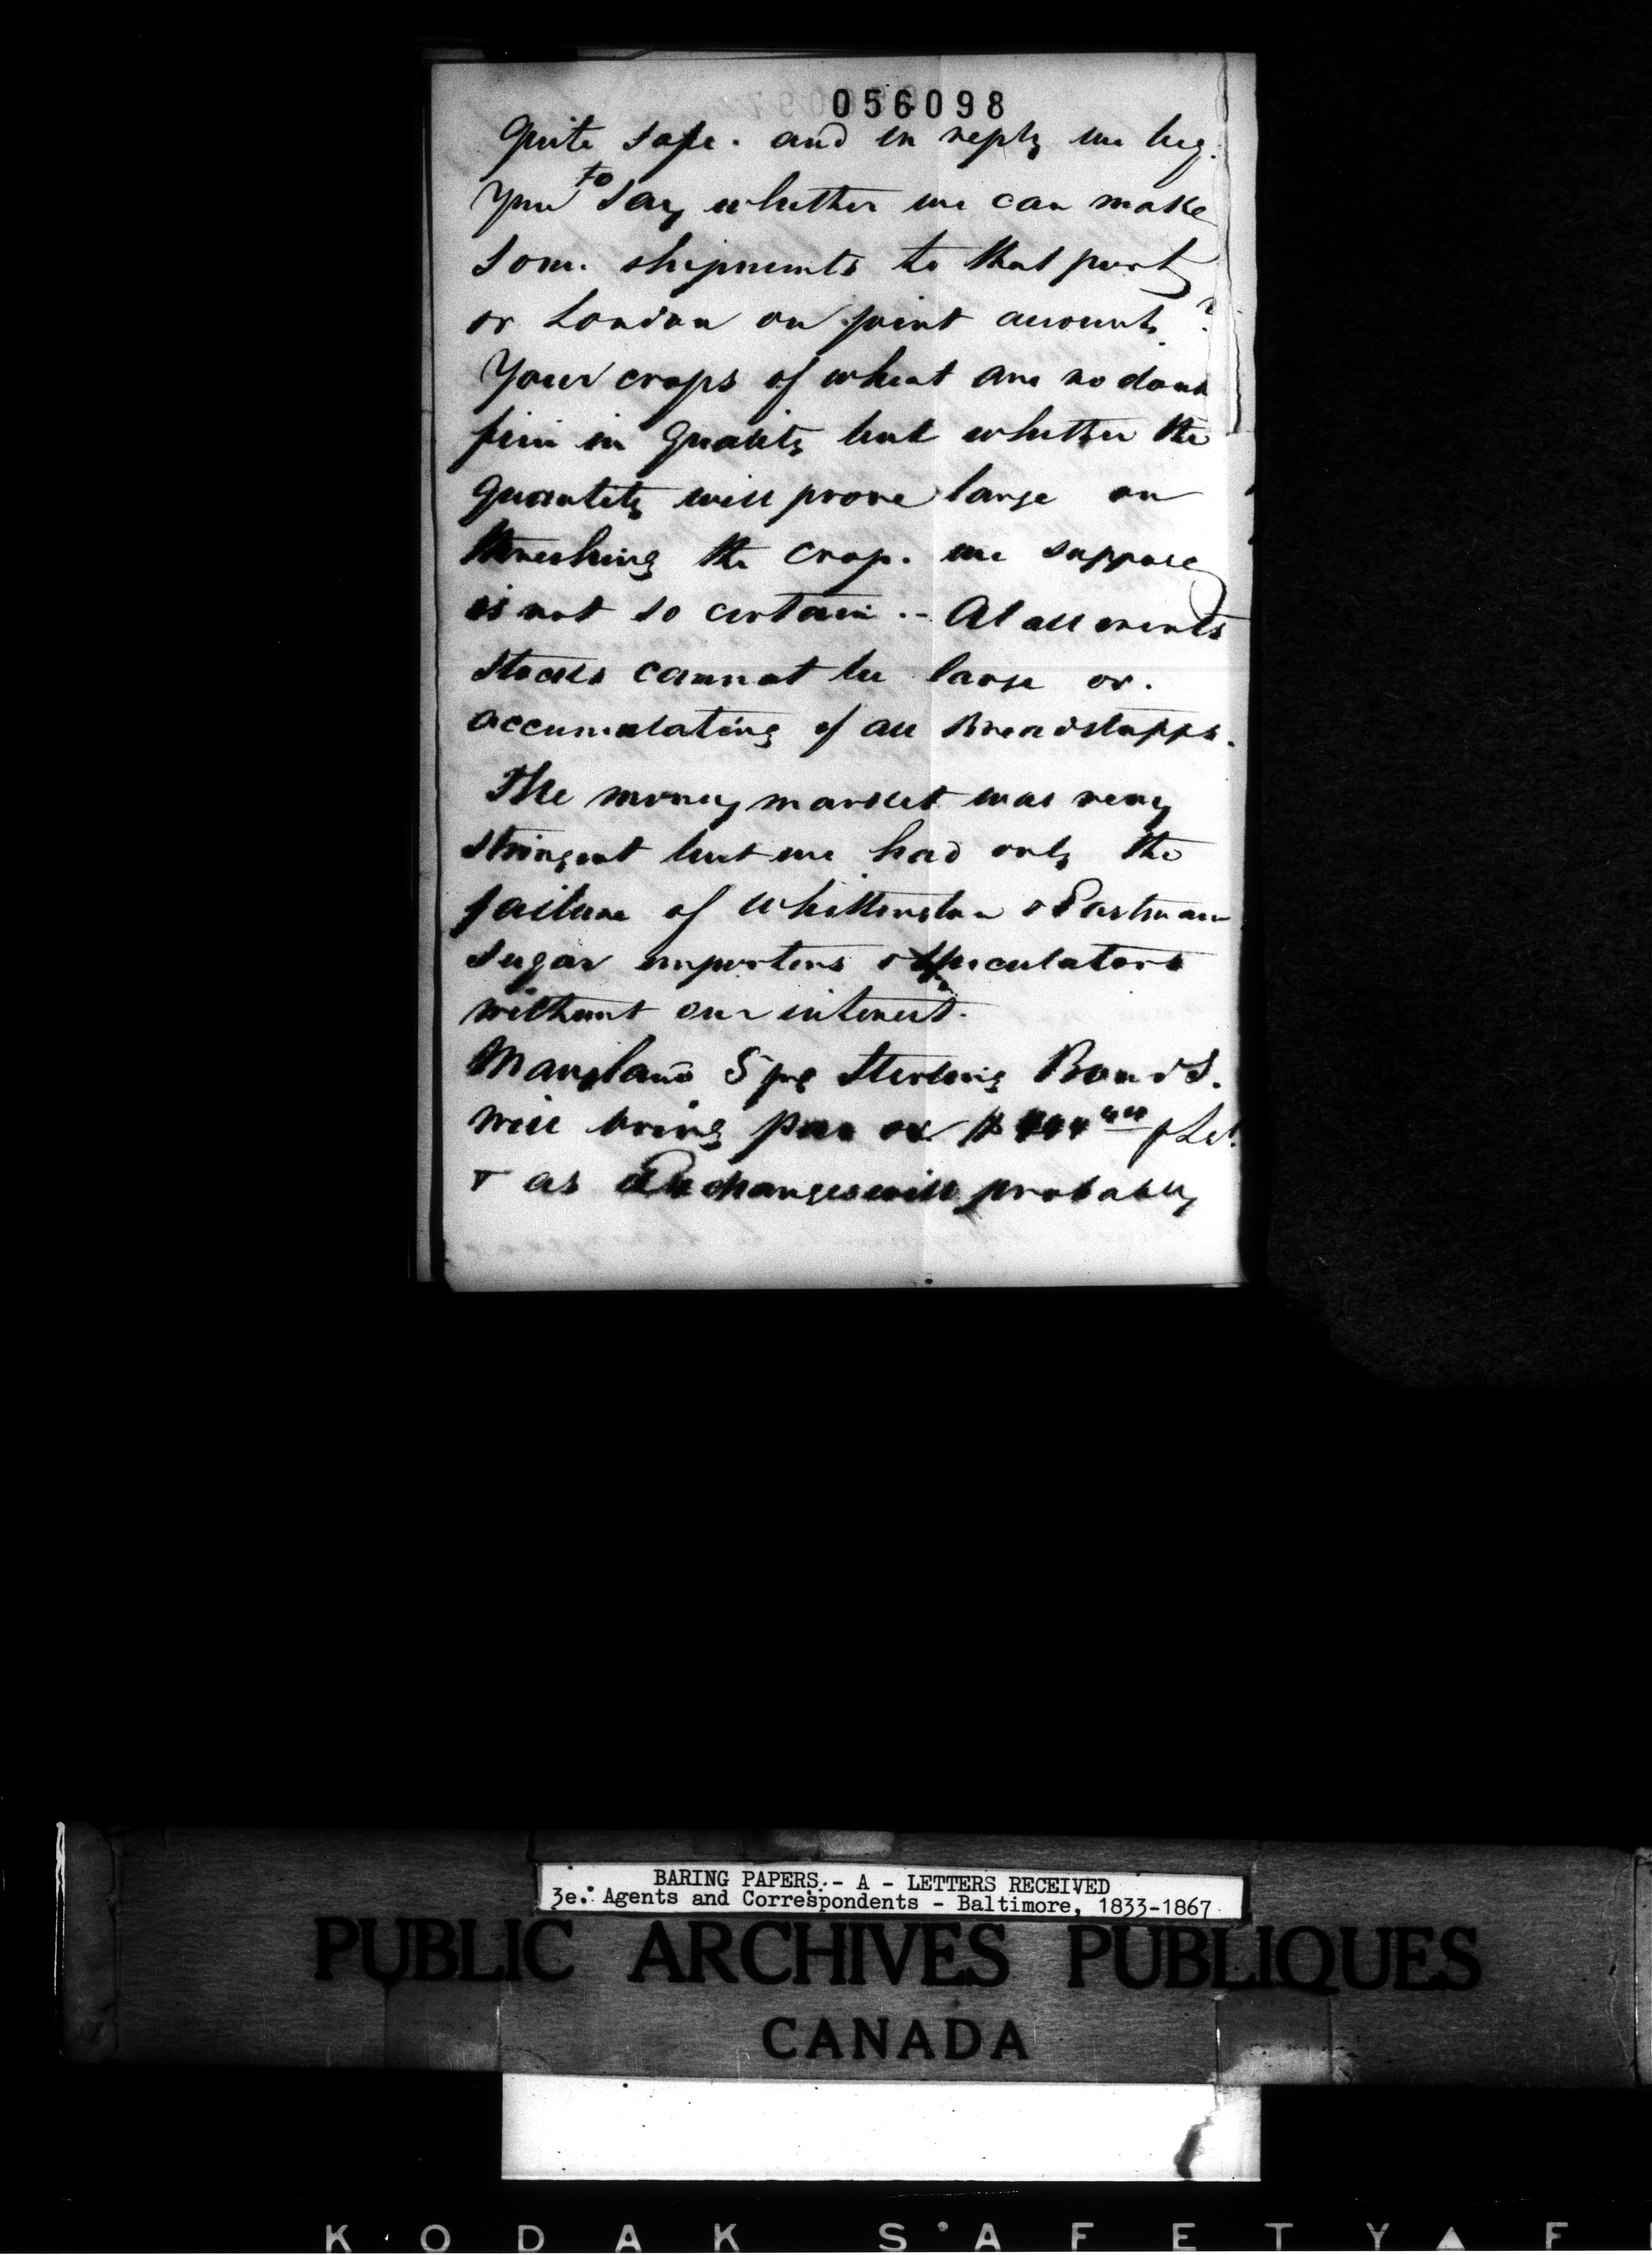 056098
quite safe. and in reply we beg.
you to say whether we can make
some shipments to that port
or London on joint account?
Your crops of wheat are no doubt
fine in quality but whether the
quantity will prove large on
threshing the crop. we suppose
is not so certain.- At all events
stocks cannot be large or.
accumulating of all Breadstuffs.
The money market was very
stringent but we had only the
failure of Whittington & Eastman
sugar importers & speculators
without our interest.
Maryland 5 pc Sterling Bonds.
will bring par ex $ 444
& as Exchanges will probably
BARING PAPERS.- A - LETTERS RECEIVED
3e. Agents and Correspondents - Baltimore, 1833-1867.
PUBLIC ARCHIVES PUBLIQUES
CANADA
KODAK SAFETY▲F